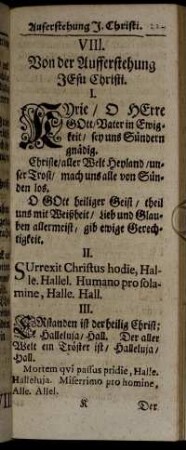 Aufferstehung J. Christi.
VIII.
Von der Aufferstehung
JEsu Christi.
I.
KYrie / O HErre
GOtt / Vater in Ewig-
keit / sey uns Sündern
gnädig.
Christe / aller Welt Heyland / un-
ser Trost / mach uns alle von Sün-
den los.
O GOtt heiliger Geist / theil
uns mit Weißheit / Lieb und Glau-
ben allermeist / gib ewige Gerech-
tigkeit.
II.
SUrrexit Christus hodie, Hal-
le. Hallel. Humano pro sola-
mine, Halle. Hall.
III.
ERstanden ist der heilig Christ:
Halleluja / Hall. Der aller
Welt ein Tröster ist / Halleluja /
Hall.
Mortem qvi passus pridie, Halle.
Halleluja. Miserrimo pro homine,
Alle. Allel.
K Der